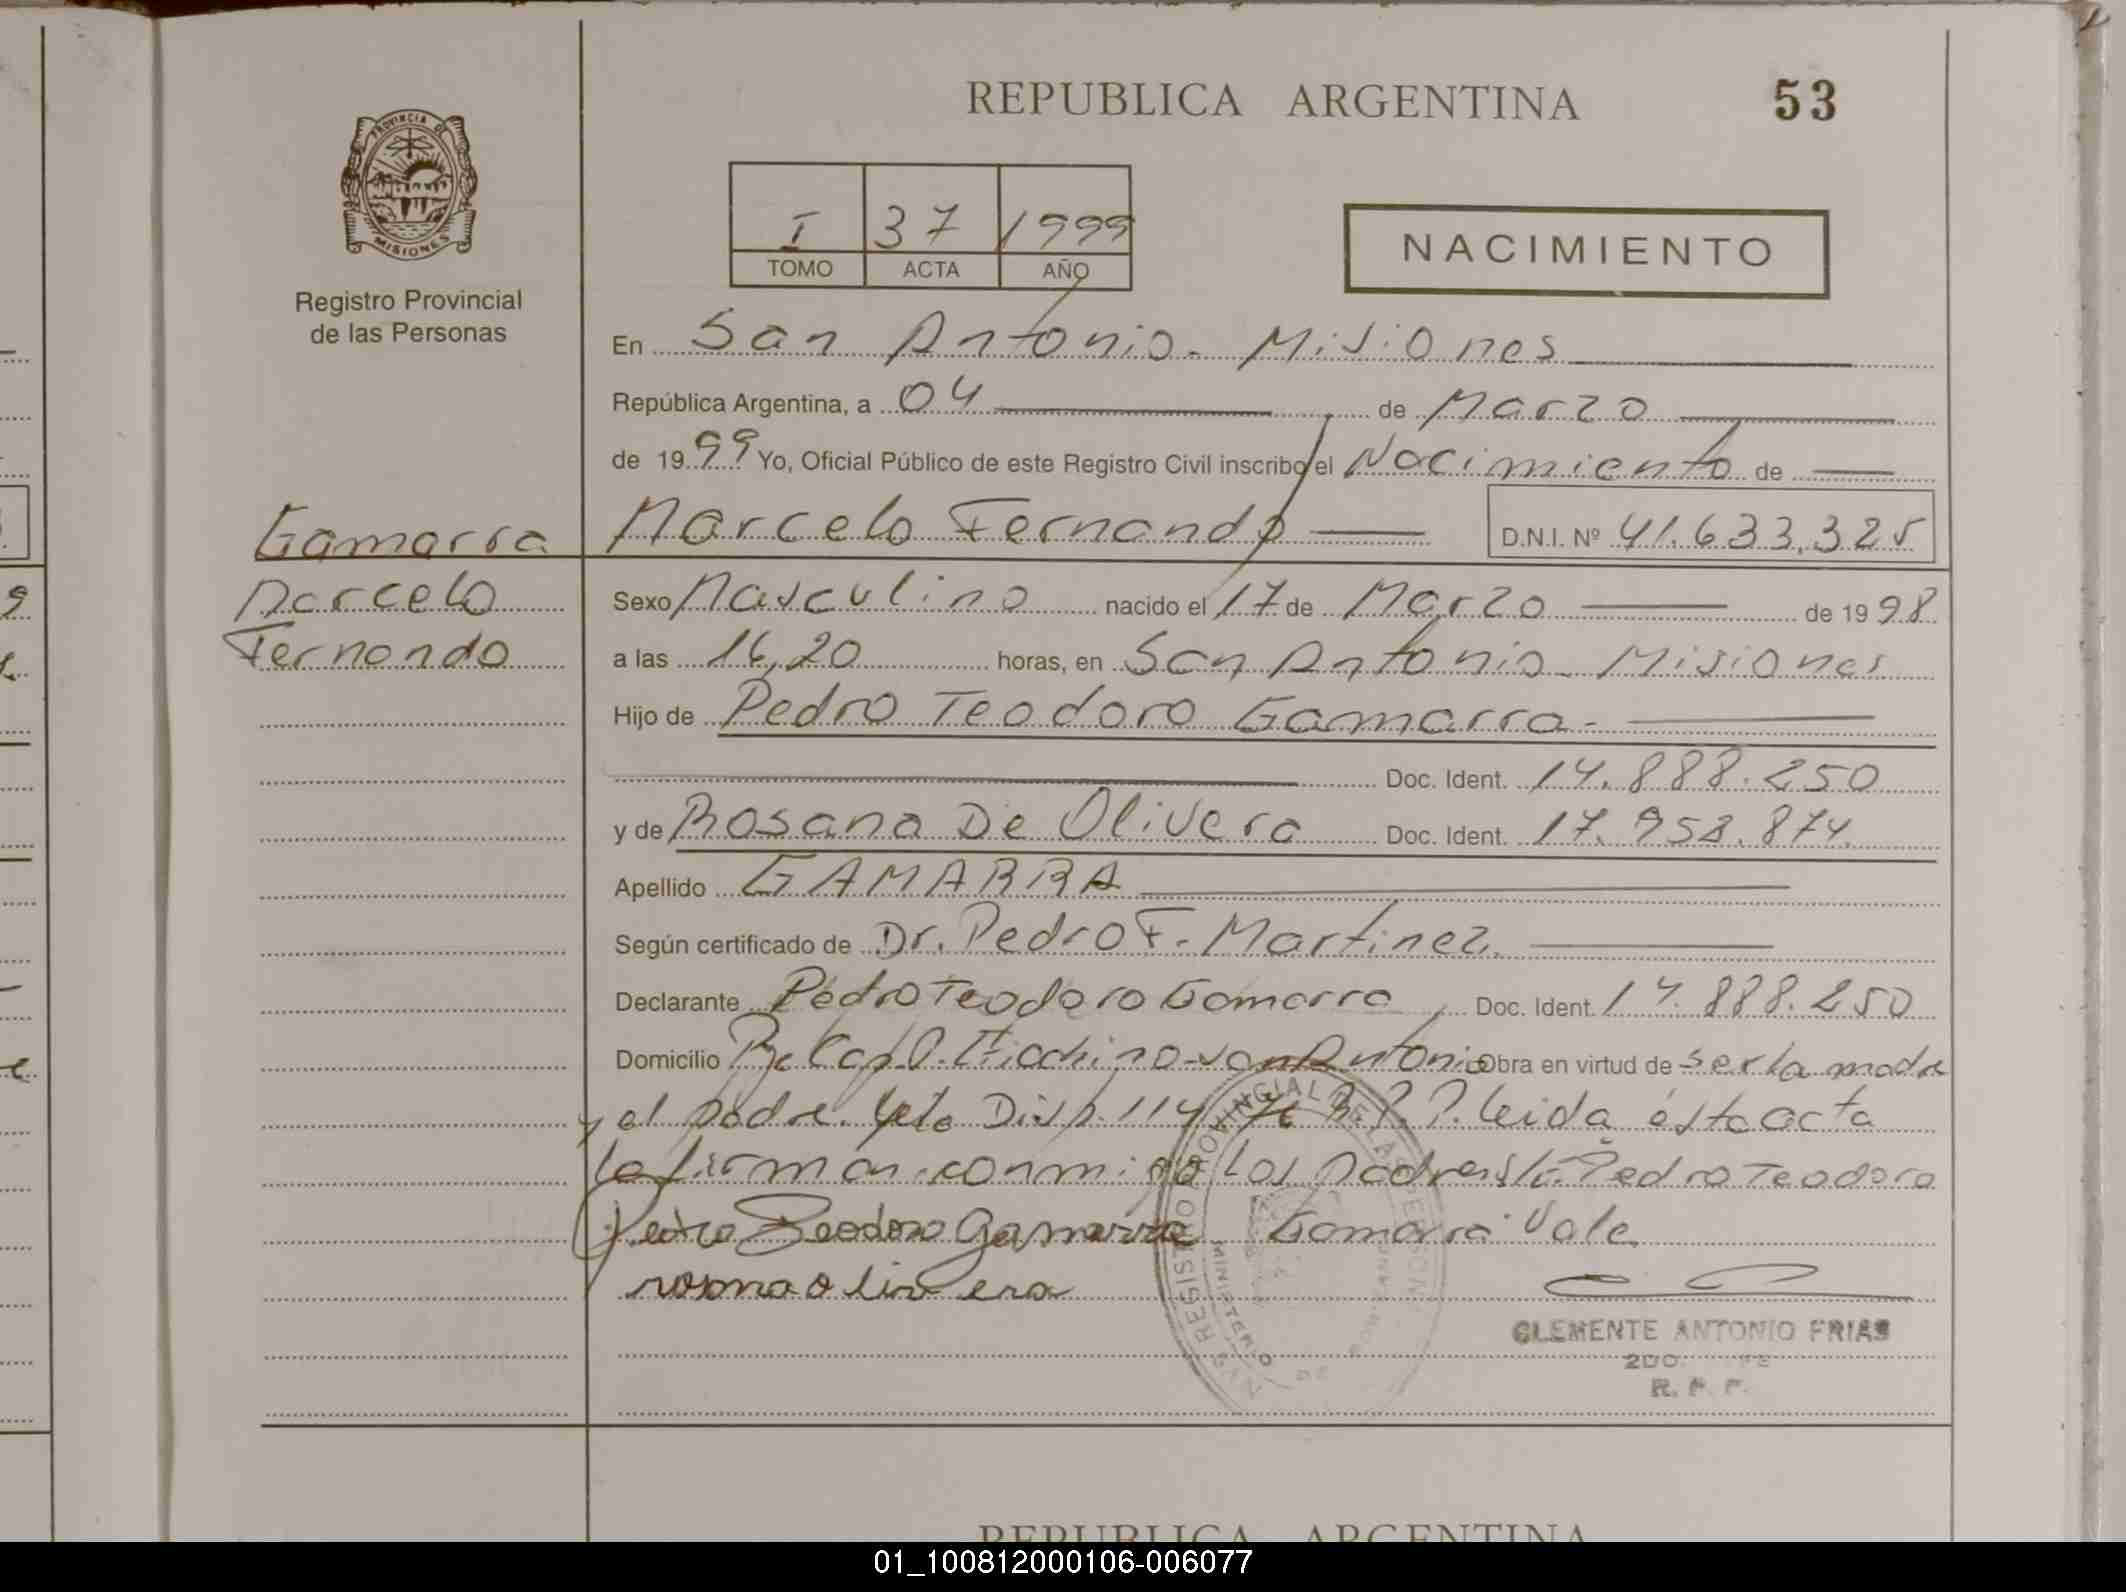 REPUBLICA ARGENTINA 53
PROVINCIA DE
MISIONES
Registro Provincial
de las Personas
I 37 1999
TOMO ACTA AÑO
NACIMIENTO
En San Antonio - Misiones
República Argentina, a 04 de Marzo
de 1999 Yo, Oficial Público de este Registro Civil inscribo el Nacimiento de
Gamarra
Marcelo
Fernando
Marcelo Fernando D.N.I. Nº 41.633.325
Sexo Masculino nacido el 17 de Marzo de 1998
a las 16,20 horas, en San Antonio - Misiones
Hijo de Pedro Teodoro Gamarra -
Doc. Ident. 14.888.250
y de Rosana De Olivera Doc. Ident. 17.958.874.
Apellido GAMARRA
Según certificado de Dr. Pedro F. Martinez.
Declarante Pedro Teodoro Gamarra Doc. Ident. 14.888.250
Domicilio San Antonio Obra en virtud de ser la madre
y el padre. Disp. 114 R.P.P. Leida ésta acta
la firman conmigo los padres Pedro Teodoro
Pedro Teodoro Gamarra Gamarra Vale
rosana olivera
CLEMENTE ANTONIO FRIAS
2DO.
R. P. P.
REGISTRO PROVINCIAL DE LAS PERSONAS
MINISTERIO DE
REPUBLICA ARGENTINA
01_100812000106-006077